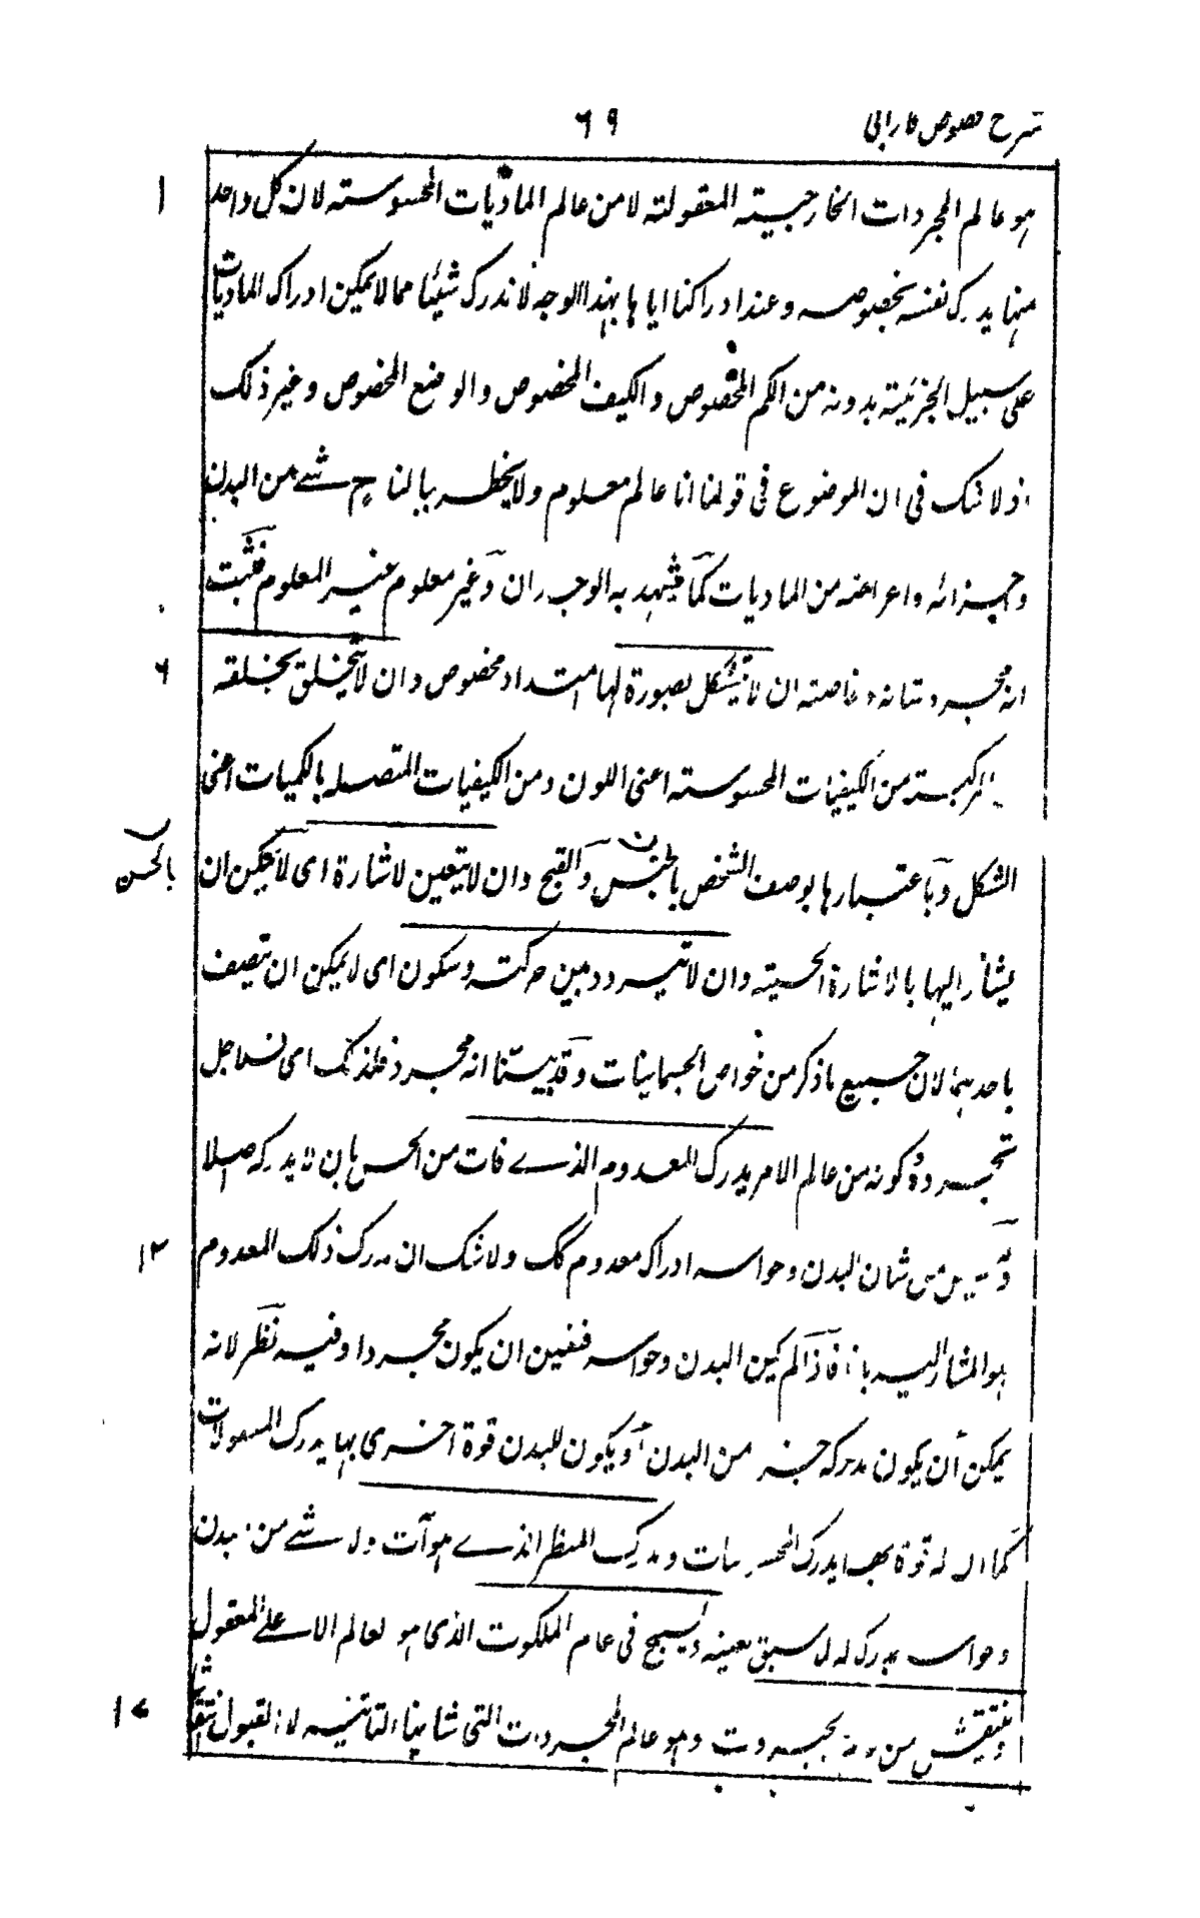 شرح فصوص فارابی ٦٩
هو عالم المجردات الخارجیة المعقولة لا من عالم المادیات المحسوسة لان کل واحد
منها یدرک نفسه بخصوصه وعند ادراکنا ایاها بهذا الوجه لا ندرک شیئا مما لا یمکن ادراک المادیات
علی سبیل الجزئیة بدونه من الکم المخصوص والکیف المخصوص والوضع المخصوص وغیر ذلک
اذ لا شک فی ان الموضوع فی قولنا انا عالم معلوم ولا یخطر ببالنا ح شے من البدن
واجزائه واعراضه من المادیات کما یشهد به الوجدان وغیر معلوم غیر المعلوم فثبت
انه مجرد شانه وخاصته ان لا یتشکل بصورة لها امتداد مخصوص وان لا یتخلق بخلقة
المرکبة من الکیفیات المحسوسة اعنی اللون ومن الکیفیات المتصلة بالکمیات اعنی
الشکل وباعتبارها یوصف الشخص بالحسن والقبح وان لا یتعین لاشارة ای لا یمکن ان
بالحسن
یشار الیها بالاشارة الحسیة وان لا یتردد بین حرکة وسکون ای لا یمکن ان یتصف
باحدهما لان جمیع ما ذکر من خواص الجسمانیات وقد بینا انه مجرد فلذلک ای فلاجل
تجرده وکونه من عالم الامر یدرک المعدوم الذے فات من الحس بان لا یدرکه اصلا
ولیس من شان البدن وحواسه ادراک معدوم کک ولا شک ان مدرک ذلک المعدوم
هو المشار الیه بانا فاذا لم یکن البدن وحواسه فتعین ان یکون مجردا وفیه نظر لانه
یمکن ان یکون مدرکه من البدن او یکون للبدن قوة اخری بها یدرک
کما ان له قوة بها یدرک المحسوسات ویدرک المنتظر الذے هو آت ولا شے من البدن
وحواسه یدرک له بعینه ویسبح فی عالم الملکوت الذی هو العالم الاعلے المعقول
وینتقش من الجبروت وهو عالم المجردات التی شانها التاثیر لا القبول
١
٦
١٢
١٧